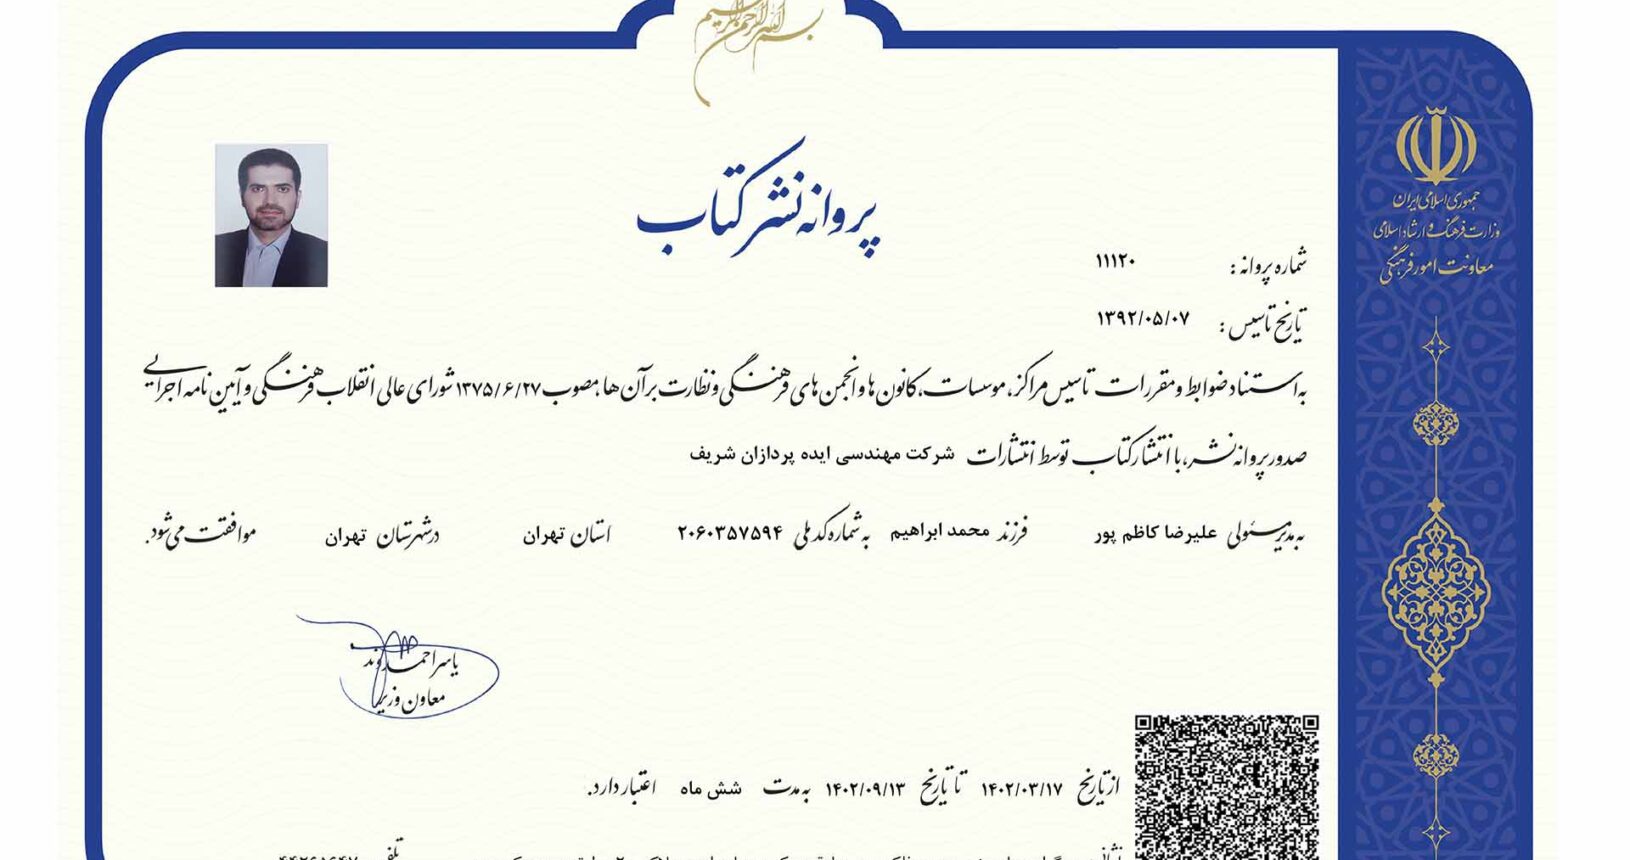 بسم الله الرحمن الرحیم
جمهوری اسلامی ایران
وزارت فرهنگ و ارشاد اسلامی
معاونت امور فرهنگی
پروانه نشر کتاب
شماره پروانه : ۱۱۱۲۰
تاریخ تاسیس : ۱۳۹۲/۰۵/۰۷
به استناد ضوابط و مقررات تاسیس مراکز، موسسات، کانون ها و انجمن های فرهنگی و نظارت بر آن ها، مصوب ۱۳۷۵/۶/۲۷ شورای عالی انقلاب فرهنگی و آیین نامه اجرایی
صدور پروانه نشر، با انتشار کتاب توسط انتشارات شرکت مهندسی ایده پردازان شریف
به مدیر مسئولی علیرضا کاظم پور فرزند محمد ابراهیم به شماره کد ملی ۲۰۶۰۳۵۷۵۹۴ استان تهران در شهرستان تهران موافقت می شود.
یاسر احمدوند
معاون وزیر
از تاریخ ۱۴۰۲/۰۳/۱۷ تا تاریخ ۱۴۰۲/۰۹/۱۳ به مدت شش ماه اعتبار دارد.